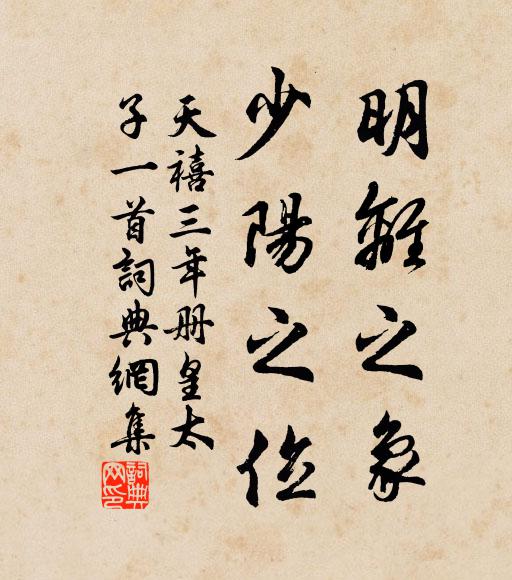 明離之象
少陽之位
天禧三年册皇太
子一首詞典網集
詞典
网印